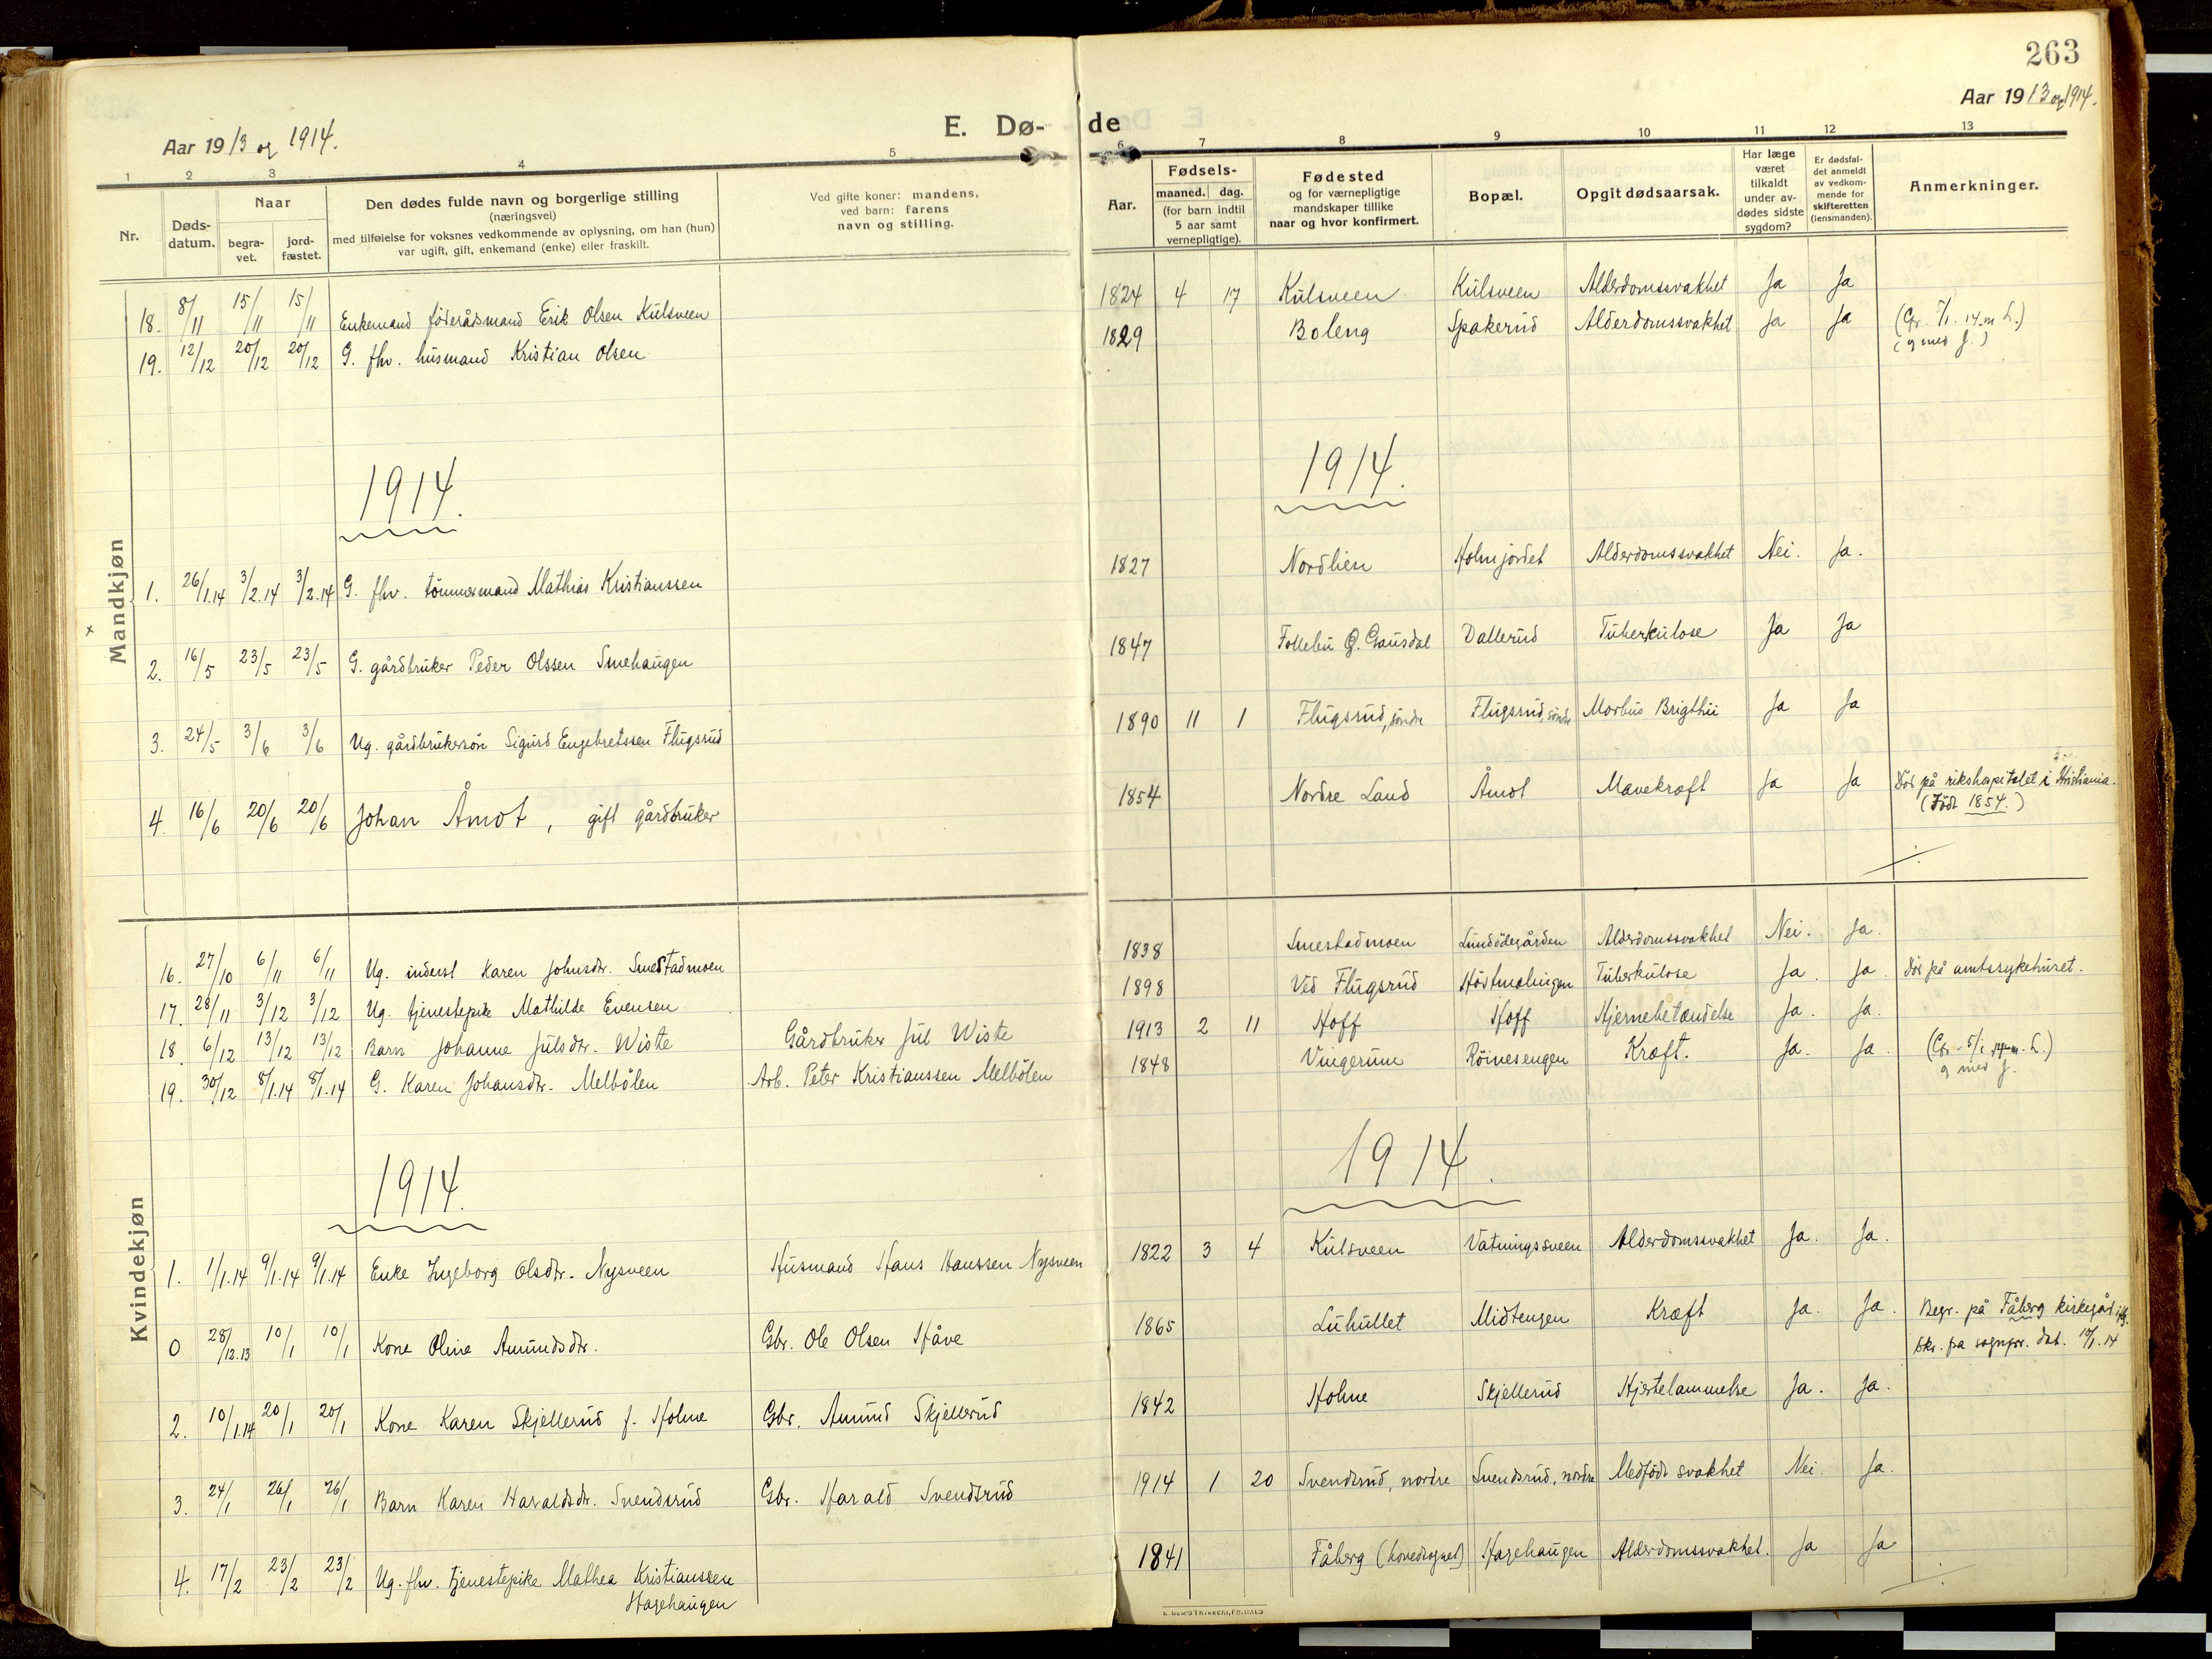 263
Aar 1913 og 1914.
E. Dø-de
Aar 1913 og 1914.
1 2 3 4 5 6 7 8 9 10 11 12 13
Nr.
Døds-datum.
Naar
begra-vet.
jord-fæstet.
Den dødes fulde navn og borgerlige stilling
(næringsvei)
med tilføielse for voksnes vedkommende av oplysning, om han (hun)
var ugift, gift, enkemand (enke) eller fraskilt.
Ved gifte koner: mandens,
ved barn: farens
navn og stilling.
Fødsels-
Aar.
maaned. dag.
(for barn indtil
5 aar samt
vernepligtige).
Fødested
og for værnepligtige
mandskaper tillike
naar og hvor konfirmert.
Bopæl.
Opgit dødsaarsak.
Har læge
været
tilkaldt
under av-
dødes sidste
sygdom?
Er dødsfal-
det anmeldt
av vedkom-
mende for
skifteretten
(lensmanden).
Anmerkninger.
Mandkjøn
18. 8/11 15/11 15/11 Enkemand føderådsmand Erik Olsen Kulsveen 1824 4 17 Kulsveen Kulsveen Alderdomssvakhet Ja Ja
19. 12/12 20/12 20/12 G. fhv. husmand Kristian Olsen 1829 Boleng Spakerud Alderdomssvakhet Ja Ja (Gr. 5/1. 14. m L.)
(g med J.)
1914. 1914.
1. 26/1.14 3/2.14 3/2.14 G. fhv. tömmermand Mathias Kristianssen 1827 Nordlien Holmjordet Alderdomssvakhet Nei. Ja.
2. 16/5 23/5 23/5 G. gårdbruker Peder Olssen Smehaugen 1847 Follebu Ö. Gausdal Dallerud Tuberkulose Ja Ja
3. 24/5 3/6 3/6 Ug. gårdbrukersön Sigurd Engebretssen Flugsrud 1890 11 1 Flugsrud, söndre Flugsrud, söndre Morbus Brigthii Ja Ja
4. 16/6 20/6 20/6 Johan Åmot, gift gårdbruker 1854 Nordre Land Åmot Mavekræft Ja Ja Död på rikshospitalet i Kristiania.
(Födt 1854.)
Kvindekjøn
16. 27/10 6/11 6/11 Ug. inderst Karen Johnsdtr. Smestadmoen 1838 Smestadmoen Lundödegården Alderdomssvakhet Nei. Ja.
17. 28/11 3/12 3/12 Ug. tjenestepike Mathilde Evensen 1898 Ved Flugsrud Hövtmælingen Tuberkulose Ja. Ja. Död på amtssykehuset.
18. 6/12 13/12 13/12 Barn Johanne Julsdtr. Wiste Gårdbruker Jul Wiste 1913 2 11 Hoff Hoff Hjernebetændelse Ja. Ja.
19. 30/12 8/1.14 8/1.14 G. Karen Johansdtr. Melbölen Arb. Peter Kristianssen Melbölen 1848 Vingerum Röinesengen Kræft. Ja. Ja. (Gr. 5/1 14 m. L.)
g med J.
1914. 1914.
1. 1/1.14 9/1.14 9/1.14 Enke Ingeborg Olsdtr. Nysveen Husmand Hans Hanssen Nysveen 1822 3 4 Kulsveen Vatningssveen Alderdomssvakhet Ja. Ja.
0 28/12.13 10/1 10/1 Kone Oline Amundsdtr. Gbr. Ole Olsen Håve 1865 Luhullet Midtengen Kræft Ja. Ja. Begr. på Fåberg kirkegård iflg.
skr. fra sognepr. dat. 10/1.14
2. 10/1.14 20/1 20/1 Kone Karen Skjellerud f. Holme Gbr. Amund Skjellerud 1842 Holme Skjellerud Hjertelammelse Ja. Ja.
3. 24/1 26/1 26/1 Barn Karen Haraldsdtr. Svendsrud Gbr. Harald Svendsrud 1914 1 20 Svendsrud, nordre Svendsrud, nordre Medfödt svakhet Nei. Ja.
4. 17/2 23/2 23/2 Ug. fhv. tjenestepike Mathea Kristianssen 1841 Fåberg (hovedsognet) Hagehaugen Alderdomssvakhet. Ja Ja
Hagehaugen